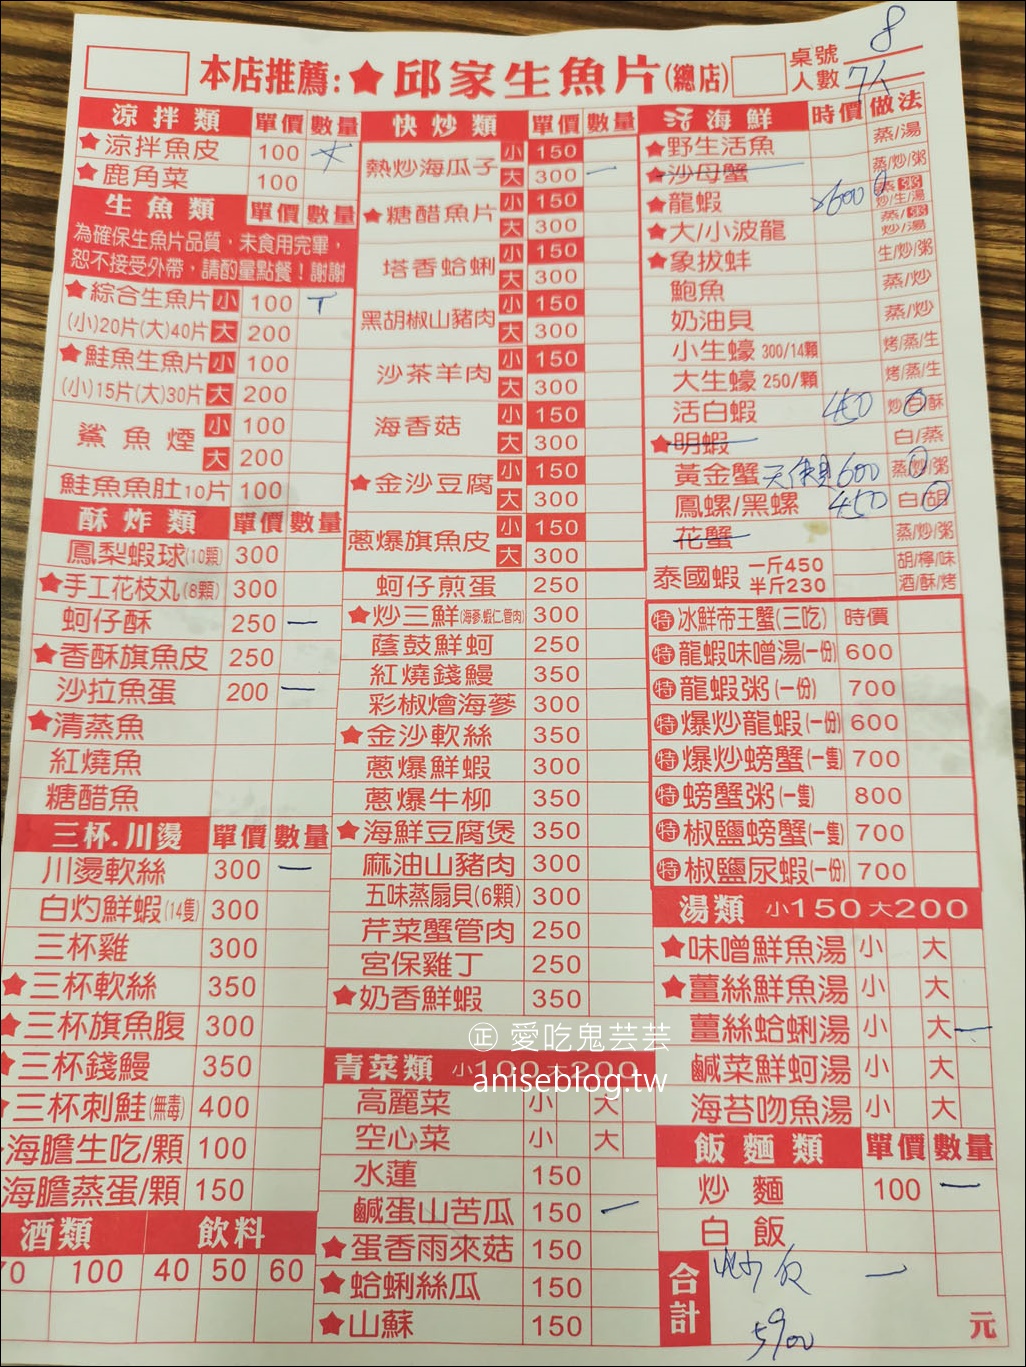 本店推薦:★邱家生魚片(總店)
桌號 8
人數 7人
涼拌類 單價 數量
★涼拌魚皮 100
★鹿角菜 100
生魚類 單價 數量
為確保生魚片品質，未食用完畢，
恕不接受外帶，請酌量點餐！謝謝
★綜合生魚片 小 100 T
(小)20片(大)40片 大 200
★鮭魚生魚片 小 100
(小)15片(大)30片 大 200
鯊魚煙 小 100
大 200
鮭魚魚肚10片 100
酥炸類 單價 數量
鳳梨蝦球(10顆) 300
★手工花枝丸(8顆) 300
蚵仔酥 250 一
★香酥旗魚皮 250
沙拉魚蛋 200 一
★清蒸魚
紅燒魚
糖醋魚
三杯.川燙 單價 數量
川燙軟絲 300 一
白灼鮮蝦(14隻) 300
三杯雞 300
★三杯軟絲 350
★三杯旗魚腹 300
★三杯錢鰻 350
★三杯刺鮭(無毒) 400
海膽生吃/顆 100
海膽蒸蛋/顆 150
酒類 飲料
70 100 40 50 60
快炒類 單價 數量
熱炒海瓜子 小 150
大 300 一
★糖醋魚片 小 150
大 300
塔香蛤蜊 小 150
大 300
黑胡椒山豬肉 小 150
大 300
沙茶羊肉 小 150
大 300
海香菇 小 150
大 300
★金沙豆腐 小 150
大 300
蔥爆旗魚皮 小 150
大 300
蚵仔煎蛋 250
★炒三鮮(海蔘.蝦仁.管肉) 300
蔭鼓鮮蚵 250
紅燒錢鰻 350
彩椒燴海蔘 300
★金沙軟絲 350
蔥爆鮮蝦 300
蔥爆牛柳 350
★海鮮豆腐煲 350
麻油山豬肉 300
五味蒸扇貝(6顆) 300
芹菜蟹管肉 250
宮保雞丁 250
★奶香鮮蝦 350
正 愛吃鬼芸芸
aniseblog.tw
青菜類 小100 大200
高麗菜 小 大
空心菜 小 大
水蓮 150
鹹蛋山苦瓜 150 一
★蛋香雨來菇 150
★蛤蜊絲瓜 150
★山蘇 150
活海鮮 時價 做法
★野生活魚 蒸/湯
★沙母蟹 蒸/炒/粥
★龍蝦 600 蒸/粥
炒/生/湯
★大/小波龍 蒸/粥
炒/湯
★象拔蚌 生/炒/粥
鮑魚 蒸/炒
奶油貝 蒸/炒
小生蠔 300/14顆 烤/蒸/生
大生蠔 250/顆 烤/蒸/生
活白蝦 450 炒/白/酥
★明蝦 白/蒸
黃金蟹 600 蒸/炒/粥
鳳螺/黑螺 450 白/胡
花蟹 蒸/炒/粥
泰國蝦 一斤450 胡/檸/味
半斤230 酒/酥/烤
特 冰鮮帝王蟹(三吃) 時價
特 龍蝦味噌湯(一份) 600
特 龍蝦粥(一份) 700
特 爆炒龍蝦(一份) 600
特 爆炒螃蟹(一隻) 700
特 螃蟹粥(一隻) 800
特 椒鹽螃蟹(一隻) 700
特 椒鹽尿蝦(一份) 700
湯類 小150 大200
★味噌鮮魚湯 小 大
★薑絲鮮魚湯 小 大
薑絲蛤蜊湯 小 大 一
鹹菜鮮蚵湯 小 大
海苔吻魚湯 小 大
飯麵類 單價 數量
炒麵 100 一
白飯
炒飯 一
合計 5900 元